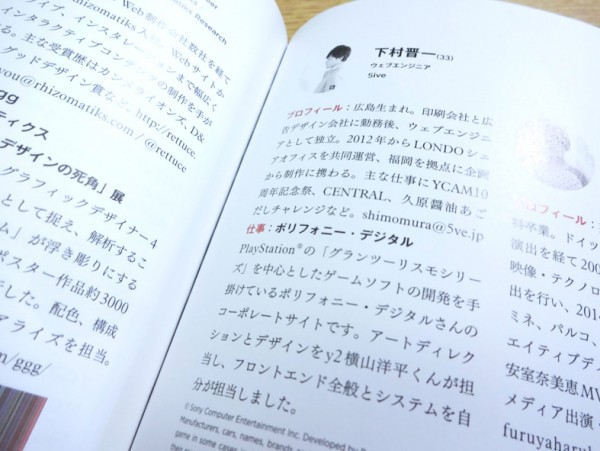 ber
hizomatiks Research
Web制作会社数社を経て
hizomatiks入社。Webサイトか
ティブ、インスタレーションまで幅広く
タラクティブコンテンツの制作を手が
主な受賞歴はカンヌライオンズ、D&
グッドデザイン賞など。http://rettuce.
you@rhizomatiks.com / @rettuce
gg
ティクス
デザインの死角」展
グラフィックデザイナー4
として捉え、解析するこ
ム」が浮き彫りにする
ポスター作品約3000
した。配色、構成
アライズを担当。
m/ggg/
下村晋一(33)
ウェブエンジニア
5ive
プロフィール：広島生まれ。印刷会社と広
告デザイン会社に勤務後、ウェブエンジニ
アとして独立。2012年からLONDOシェ
アオフィスを共同運営、福岡を拠点に企画
から制作に携わる。主な仕事にYCAM10
周年記念祭、CENTRAL、久原醤油あご
だしチャレンジなど。shimomura@5ve.jp
仕事：ポリフォニー・デジタル
PlayStation®の「グランツーリスモシリー
ズ」を中心としたゲームソフトの開発を手
掛けているポリフォニー・デジタルさんの
コーポレートサイトです。アートディレク
ションとデザインをy2横山洋平くんが担
当し、フロントエンド全般とシステムを自
分が担当しました。
© Sony Computer Entertainment Inc. Developed by
Manufacturers, cars, names, brands
game in some cases
their res
プロフィール：
科卒業。ドイッ
演出を経て200
映像・テクノロ
出を行い、201
ミネ、パルコ、
エイティブデ
安室奈美恵MV
メディア出演
furuyaharuk